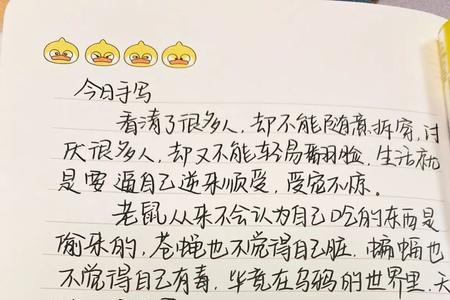 今日手写
看清了很多人,却不能随意拆穿,讨
厌很多人,却又不能轻易翻脸,生活就
是要逼自己逆来顺受,受宠不惊。
老鼠从来不会认为自己吃的东西是
偷来的,苍蝇也不觉得自己脏,蝙蝠也
不觉得自己有毒,毕竟在乌鸦的世界里,天